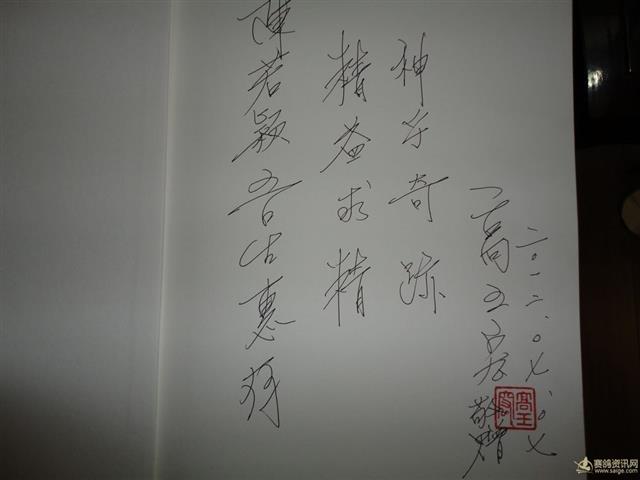 陳若颖吾惠存
精益求精
神乎奇跡
高敬赠
二〇一二.〇七.〇七
赛鸽资讯网
www.saige.com